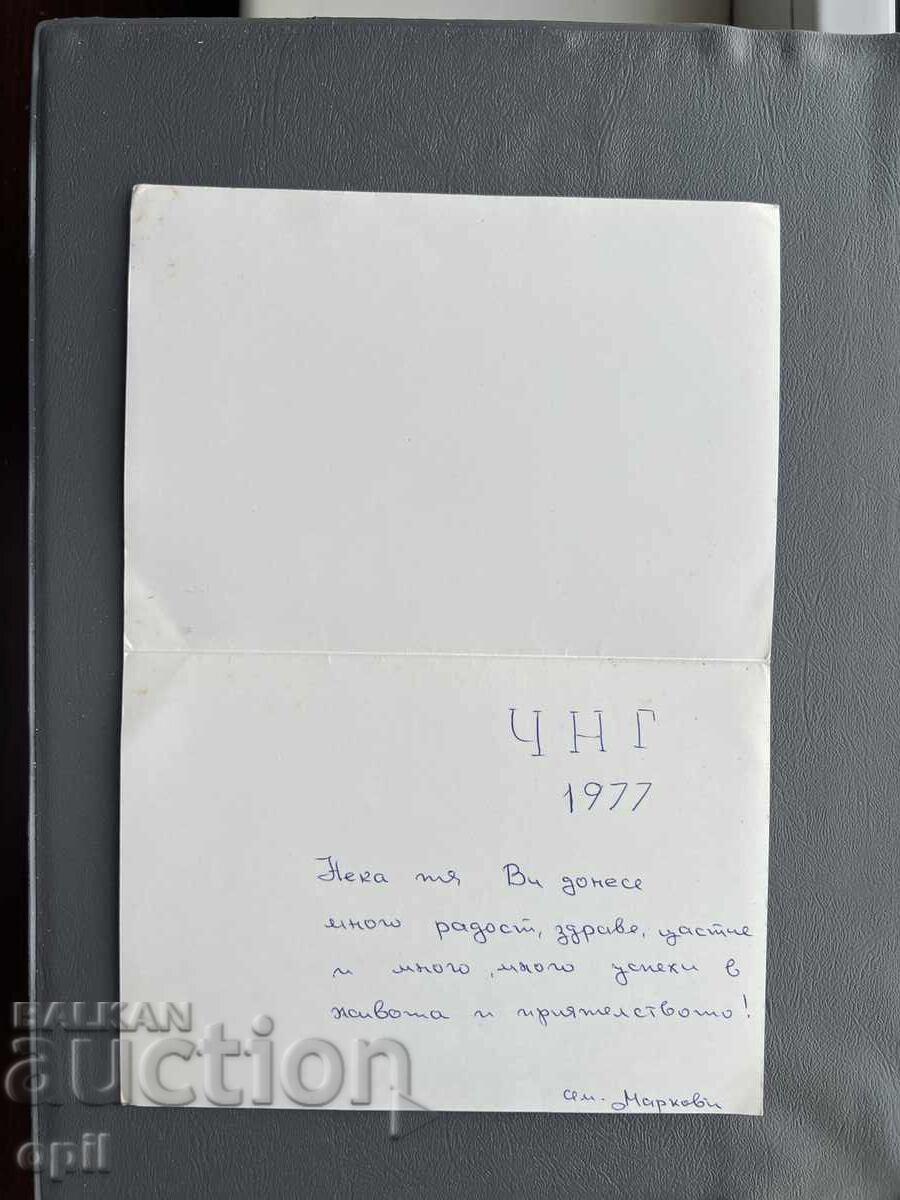 ЧНГ
1977
Нека тя Ви донесе
много радост, здраве, щастие
и много, много успехи в
живота и приятелството!
сем. Маркови
BALKAN
auction
opil